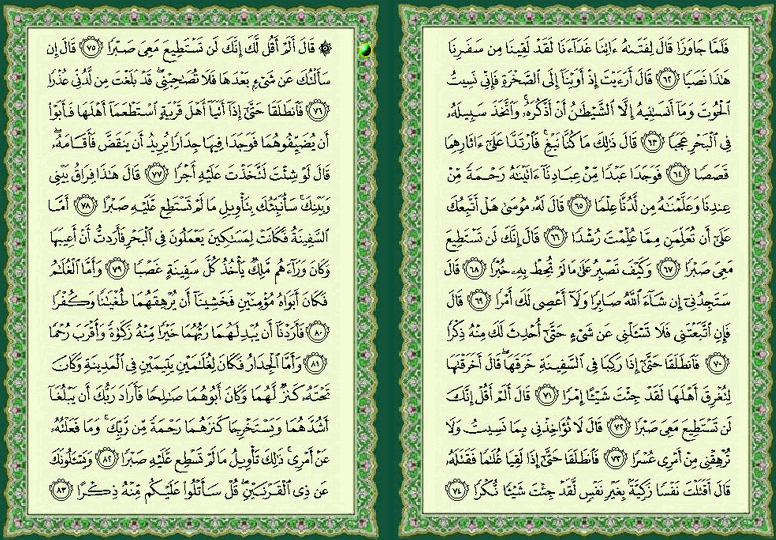 فَلَمَّا جَاوَزَا قَالَ لِفَتَىٰهُ ءَاتِنَا غَدَآءَنَا لَقَدْ لَقِينَا مِن سَفَرِنَا
هَٰذَا نَصَبًا ٦٢ قَالَ أَرَءَيْتَ إِذْ أَوَيْنَآ إِلَى ٱلصَّخْرَةِ فَإِنِّى نَسِيتُ
ٱلْحُوتَ وَمَآ أَنسَىٰنِيهُ إِلَّا ٱلشَّيْطَٰنُ أَنْ أَذْكُرَهُۥ وَٱتَّخَذَ سَبِيلَهُۥ
فِى ٱلْبَحْرِ عَجَبًا ٦٣ قَالَ ذَٰلِكَ مَا كُنَّا نَبْغِ فَٱرْتَدَّا عَلَىٰٓ ءَاثَارِهِمَا
قَصَصًا ٦٤ فَوَجَدَا عَبْدًا مِّنْ عِبَادِنَآ ءَاتَيْنَٰهُ رَحْمَةً مِّنْ
عِندِنَا وَعَلَّمْنَٰهُ مِن لَّدُنَّا عِلْمًا ٦٥ قَالَ لَهُۥ مُوسَىٰ هَلْ أَتَّبِعُكَ
عَلَىٰٓ أَن تُعَلِّمَنِ مِمَّا عُلِّمْتَ رُشْدًا ٦٦ قَالَ إِنَّكَ لَن تَسْتَطِيعَ
مَعِىَ صَبْرًا ٦٧ وَكَيْفَ تَصْبِرُ عَلَىٰ مَا لَمْ تُحِطْ بِهِۦ خُبْرًا ٦٨ قَالَ
سَتَجِدُنِىٓ إِن شَآءَ ٱللَّهُ صَابِرًا وَلَآ أَعْصِى لَكَ أَمْرًا ٦٩ قَالَ
فَإِنِ ٱتَّبَعْتَنِى فَلَا تَسْـَٔلْنِى عَن شَىْءٍ حَتَّىٰٓ أُحْدِثَ لَكَ مِنْهُ ذِكْرًا
٧٠ فَٱنطَلَقَا حَتَّىٰٓ إِذَا رَكِبَا فِى ٱلسَّفِينَةِ خَرَقَهَا ۖ قَالَ أَخَرَقْتَهَا
لِتُغْرِقَ أَهْلَهَا لَقَدْ جِئْتَ شَيْـًٔا إِمْرًا ٧١ قَالَ أَلَمْ أَقُلْ إِنَّكَ
لَن تَسْتَطِيعَ مَعِىَ صَبْرًا ٧٢ قَالَ لَا تُؤَاخِذْنِى بِمَا نَسِيتُ وَلَا
تُرْهِقْنِى مِنْ أَمْرِى عُسْرًا ٧٣ فَٱنطَلَقَا حَتَّىٰٓ إِذَا لَقِيَا غُلَٰمًا فَقَتَلَهُۥ
قَالَ أَقَتَلْتَ نَفْسًا زَكِيَّةًۢ بِغَيْرِ نَفْسٍ لَّقَدْ جِئْتَ شَيْـًٔا نُّكْرًا ٧٤
۞ قَالَ أَلَمْ أَقُل لَّكَ إِنَّكَ لَن تَسْتَطِيعَ مَعِىَ صَبْرًا ٧٥ قَالَ إِن
سَأَلْتُكَ عَن شَىْءٍۭ بَعْدَهَا فَلَا تُصَٰحِبْنِى ۖ قَدْ بَلَغْتَ مِن لَّدُنِّى عُذْرًا
٧٦ فَٱنطَلَقَا حَتَّىٰٓ إِذَآ أَتَيَآ أَهْلَ قَرْيَةٍ ٱسْتَطْعَمَآ أَهْلَهَا فَأَبَوْا۟
أَن يُضَيِّفُوهُمَا فَوَجَدَا فِيهَا جِدَارًا يُرِيدُ أَن يَنقَضَّ فَأَقَامَهُۥ ۖ
قَالَ لَوْ شِئْتَ لَتَّخَذْتَ عَلَيْهِ أَجْرًا ٧٧ قَالَ هَٰذَا فِرَاقُ بَيْنِى
وَبَيْنِكَ ۚ سَأُنَبِّئُكَ بِتَأْوِيلِ مَا لَمْ تَسْتَطِع عَّلَيْهِ صَبْرًا ٧٨ أَمَّا
ٱلسَّفِينَةُ فَكَانَتْ لِمَسَٰكِينَ يَعْمَلُونَ فِى ٱلْبَحْرِ فَأَرَدتُّ أَنْ أَعِيبَهَا
وَكَانَ وَرَآءَهُم مَّلِكٌ يَأْخُذُ كُلَّ سَفِينَةٍ غَصْبًا ٧٩ وَأَمَّا ٱلْغُلَٰمُ
فَكَانَ أَبَوَاهُ مُؤْمِنَيْنِ فَخَشِينَآ أَن يُرْهِقَهُمَا طُغْيَٰنًا وَكُفْرًا
٨٠ فَأَرَدْنَآ أَن يُبْدِلَهُمَا رَبُّهُمَا خَيْرًا مِّنْهُ زَكَوٰةً وَأَقْرَبَ رُحْمًا
٨١ وَأَمَّا ٱلْجِدَارُ فَكَانَ لِغُلَٰمَيْنِ يَتِيمَيْنِ فِى ٱلْمَدِينَةِ وَكَانَ
تَحْتَهُۥ كَنزٌ لَّهُمَا وَكَانَ أَبُوهُمَا صَٰلِحًا فَأَرَادَ رَبُّكَ أَن يَبْلُغَآ
أَشُدَّهُمَا وَيَسْتَخْرِجَا كَنزَهُمَا رَحْمَةً مِّن رَّبِّكَ ۚ وَمَا فَعَلْتُهُۥ
عَنْ أَمْرِى ۚ ذَٰلِكَ تَأْوِيلُ مَا لَمْ تَسْطِع عَّلَيْهِ صَبْرًا ٨٢ وَيَسْـَٔلُونَكَ
عَن ذِى ٱلْقَرْنَيْنِ ۖ قُلْ سَأَتْلُوا۟ عَلَيْكُم مِّنْهُ ذِكْرًا ٨٣